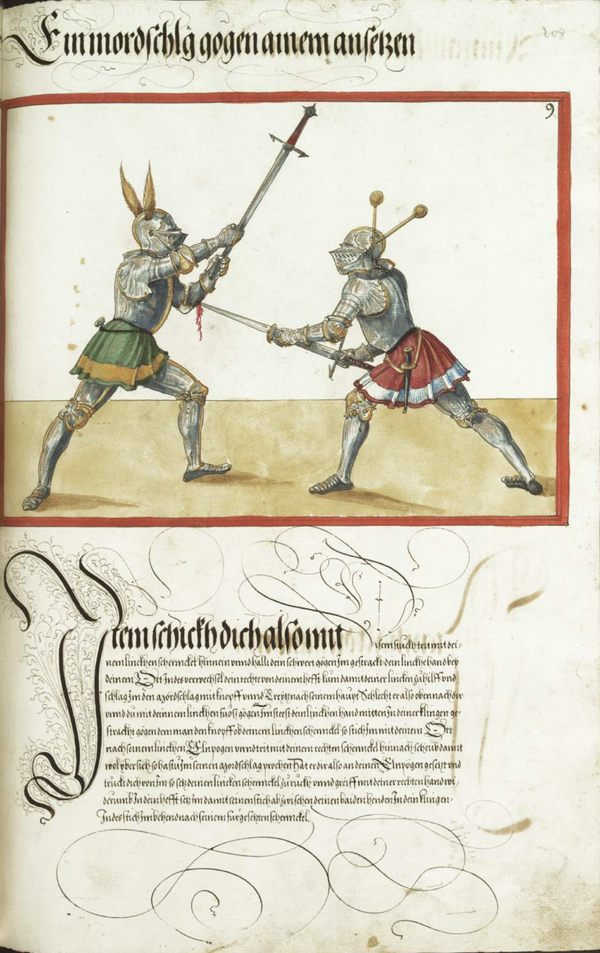 Ein mordschlg gögen ainem ansetzen
208
9
Item schickh dich also mit disem stuckh trit mit dei-
nem linckhen schennckel hinnein vnnd hallt dein schwert gögen Im gestrackt dein linckhe hand bey
deinem Ort Indes verwechsl dein rechte von deinem hefft kum damit deiner linckhen zu hilff vnd
schlag Im den mordschlag mit knopff vnnd Creytz nach seinem haupt Schlecht er also oben nach dir
vnnd du mit deinnem linckhen fuoß gögen Im steest dein linckhen hand mitten In deiner klingen ge-
strackht gögen dem man den knopff ob deinem linckhen schennckel so stich Im mit deinem Ort
nach seinem linckhen Elnpogen vnnd trit mit deinem rechten schennckel hinnach scheub damit
wol yber sich so hastu Im seinen mordschlag brochen Hat er dir also an deinem Elnpogen gesetzt vnd
truckt dich von Im so setz deinen lincken schennckel zuruckh vnnd greiff mit deiner rechten hand wi-
derumb In dein hefft setz Im damit seinen stich ab zwischen deinen baiden henden In dein klingen
Indes stich Im behend nach seinem fürgesetzten schennckel